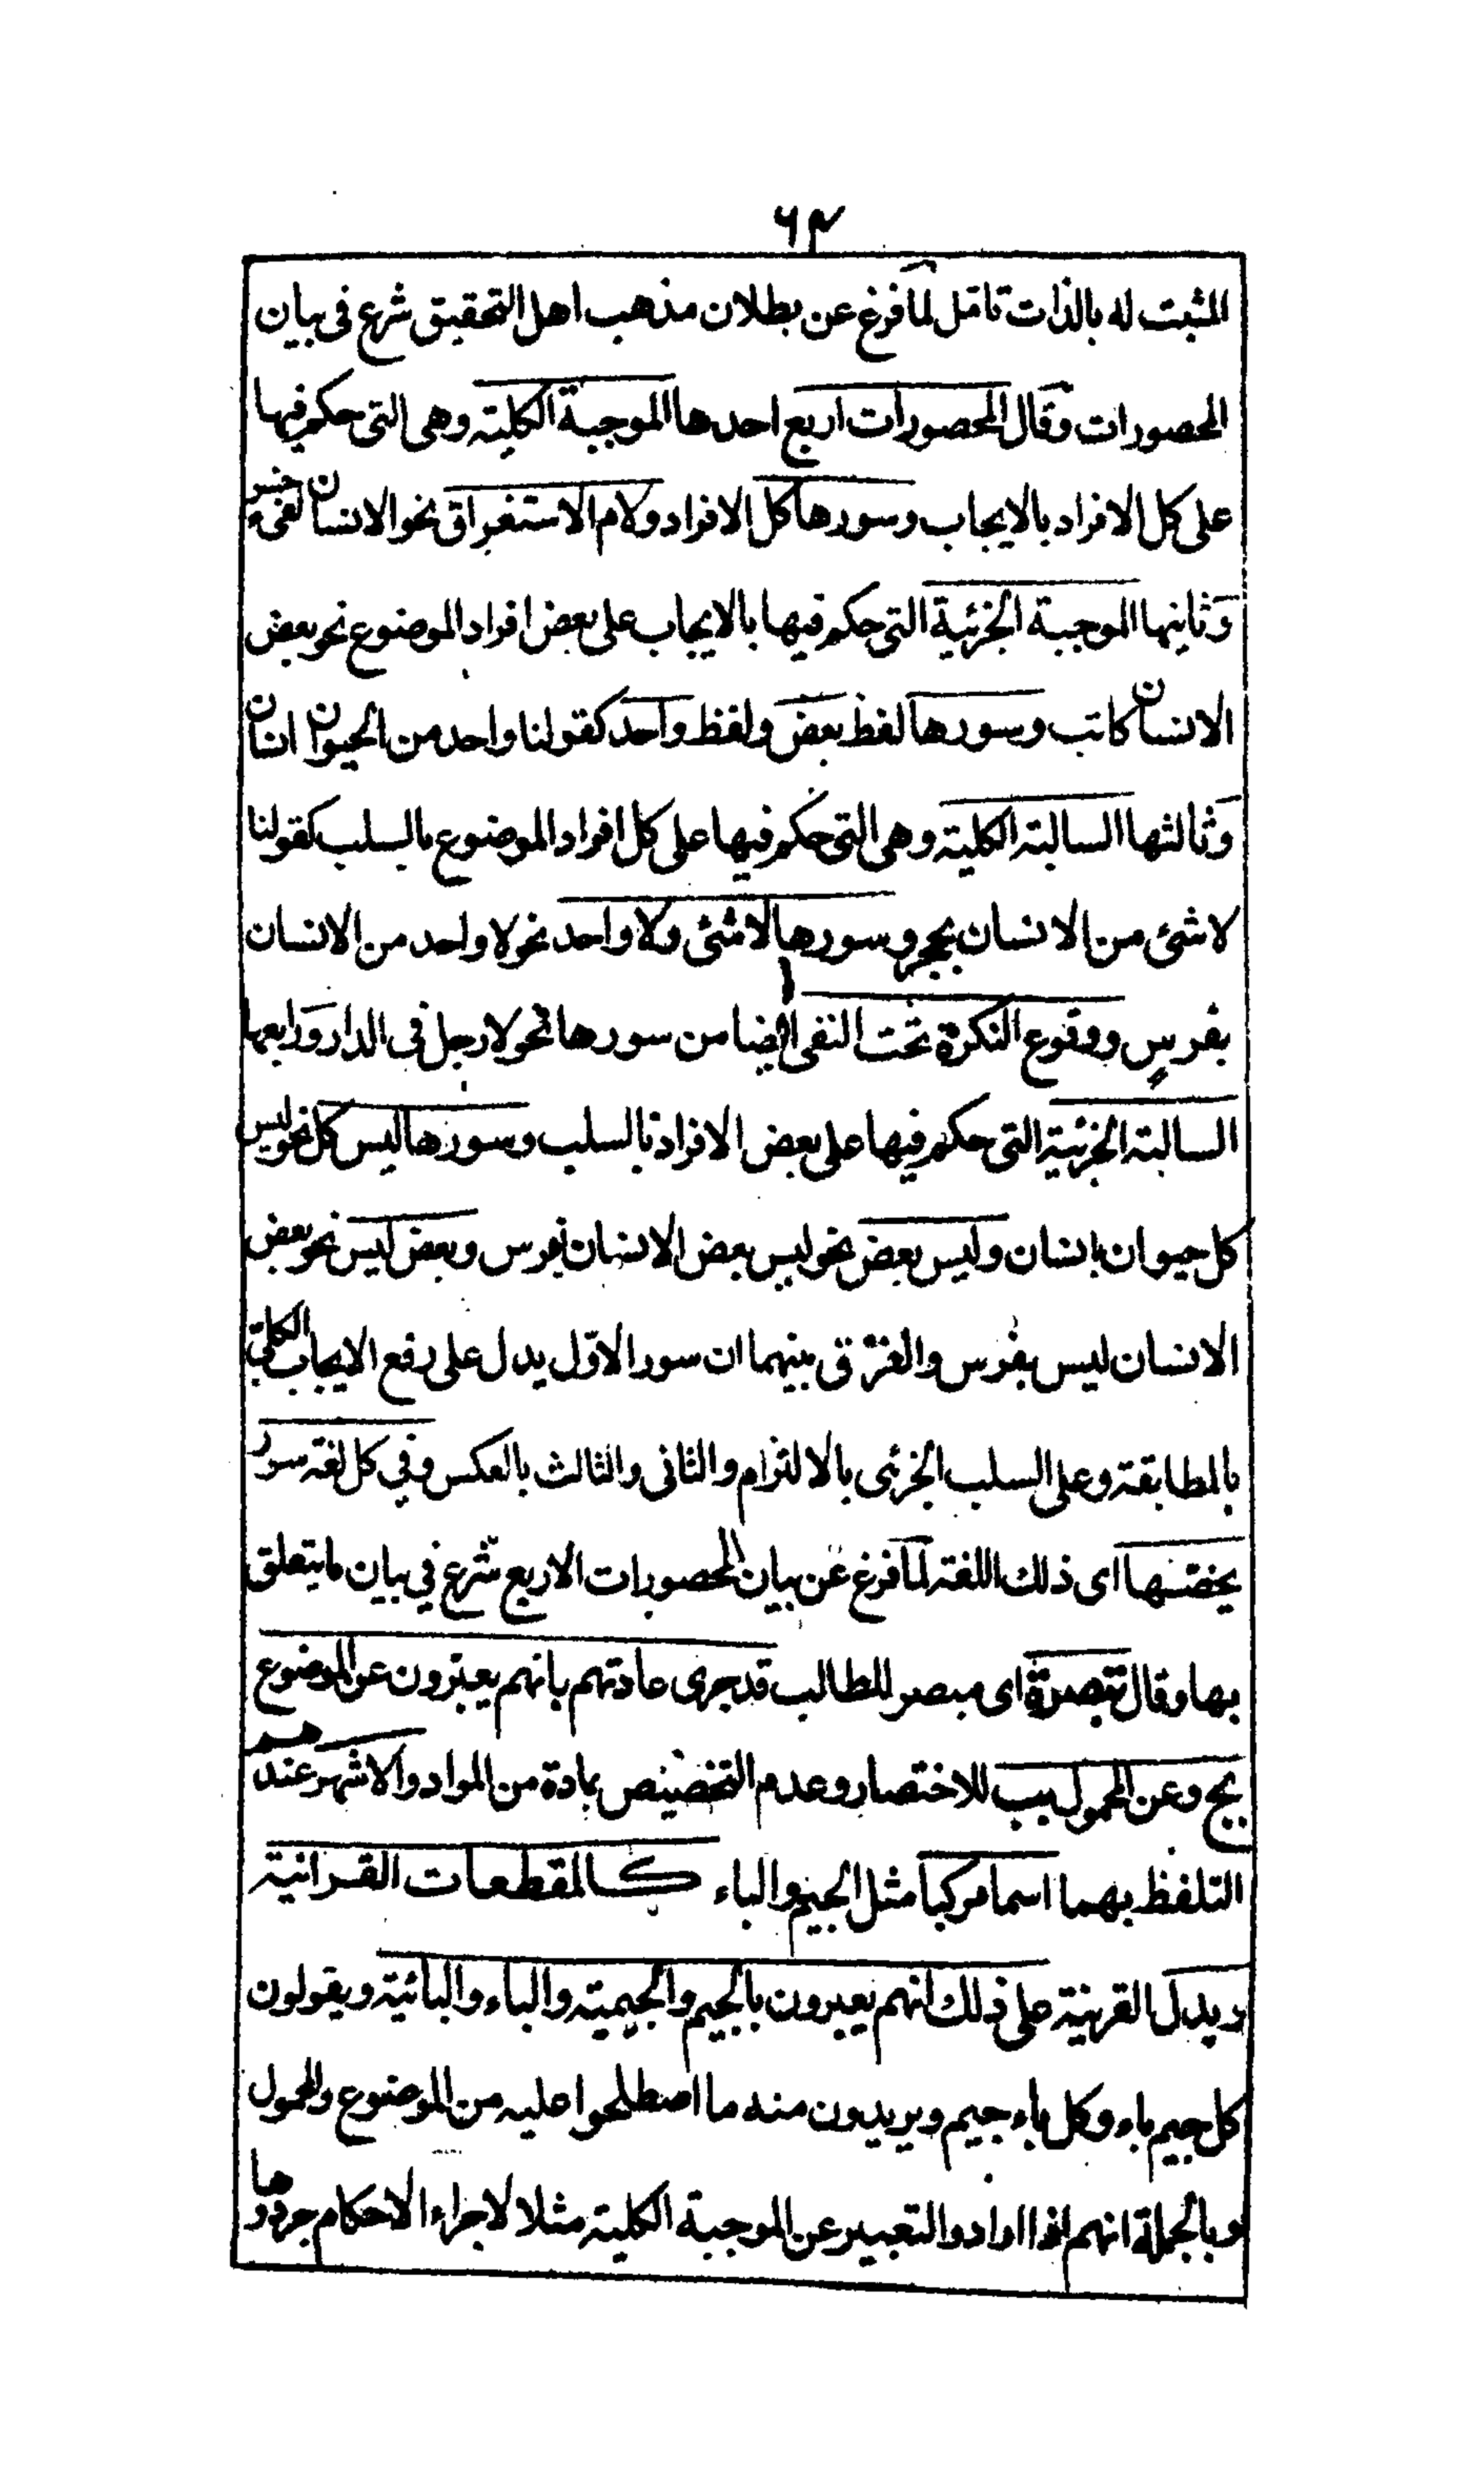 ٦٣
المثبت له بالذات تامّل لما فرغ عن بطلان مذهب اهل التحقيق شرع فى بيان
المحصورات وقال المحصورات اربع احدها الموجبة الكلية وهى التى حكم فيها
على كل الافراد بالايجاب وسورها كل الافراد ولام الاستغراق نحو الانسان لفى خسر
وثانيها الموجبة الجزئية التى حكم فيها بالايجاب على بعض افراد الموضوع نحو بعض
الانسان كاتب وسورها لفظ بعض ولفظ واحد كقولنا واحد من الحيوان انسان
وثالثها السالبة الكلية وهى التى حكم فيها على كل افراد الموضوع بالسلب كقولنا
لا شئ من الانسان بحجر وسورها لا شئ ولا واحد نحو لا واحد من الانسان
بفرسٍ ووقوع النكرة تحت النفى ايضا من سورها نحو لا رجل فى الدار ورابعها
السالبة الجزئية التى حكم فيها على بعض الافراد بالسلب وسورها ليس كل نحو ليس
كل حيوان بانسان وليس بعض نحو ليس بعض الانسان بفرس وبعض ليس نحو بعض
الانسان ليس بفرس والفرق بينهما ان سور الاوّل يدل على رفع الايجاب الكلى
بالمطابقة وعلى السلب الجزئى بالالتزام والثانى والثالث بالعكس وفى كل لغة سور
يخصّها اى ذلك اللغة لما فرغ عن بيان المحصورات الاربع شرع فى بيان ما يتعلق
بها وقال تبصرة اى مبصر للطالب قد جرى عادتهم بانهم يعبّرون عن الموضوع
بج وعن المحمول بب للاختصار وعدم التخصيص بمادة من المواد والاشهر عندهم
التلفظ بهما اسما مركبا مثل الجيم والباء كالمقطعات القرانية
ويدل القرينة على ذلك انهم يعبرون بالجيم والجيمية والباء والبائية ويقولون
كل جيم باء وكل باء جيم ويريدون منه ما اصطلحوا عليه من الموضوع والمحمول
وبالجملة انهم اذا ارادوا التعبير عن الموجبة الكلية مثلا لاجراء الاحكام جردوها